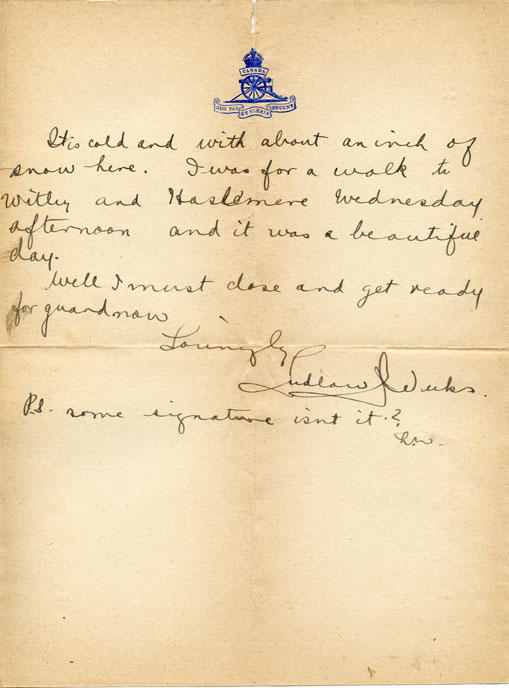 CANADA
QUO FAS ET GLORIA DUCUNT
It is cold and with about an inch of
snow here. I was for a walk to
Witley and Haslemere Wednesday
afternoon and it was a beautiful
day.
Well I must close and get ready
for guard now
Lovingly
Ludlow J Weeks.
P.S. some signature isnt it?
L.W.